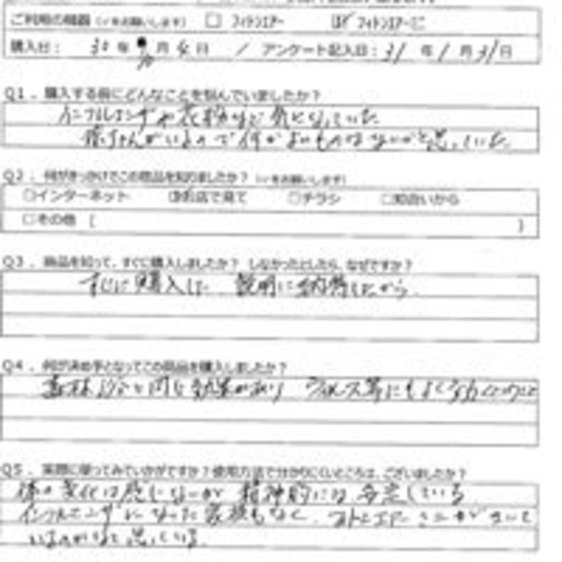 ご利用の機器（✓をお願いします） □ フィトンエアー ☑ フィトンエアーミニ
購入日： 30 年 10 月 日 ／ アンケート記入日： 31 年 1 月 31 日
Q1．購入する前にどんなことを悩んでいましたか？
インフルエンザや花粉など気になっていた
孫ちゃんがいるので何かよいものはないかと思っていた。
Q2．何がきっかけでこの商品を知りましたか？（✓をお願いします）
□インターネット ☑お店で見て □チラシ □知合いから
□その他［ ］
Q3．商品を知って、すぐに購入しましたか？ しなかったとしたら、なぜですか？
すぐに購入した 説明に納得したから
Q4．何が決め手となってこの商品を購入しましたか？
森林浴と同じ効果があり ウィルス等にも
Q5．実際に使ってみていかがですか？使用方法で分かりにくいところは、ございましたか？
体の変化は感じないが 精神的には安定している
インフルエンザになった家族もなく、フィトンエアーミニが
いるのかなと思っている。